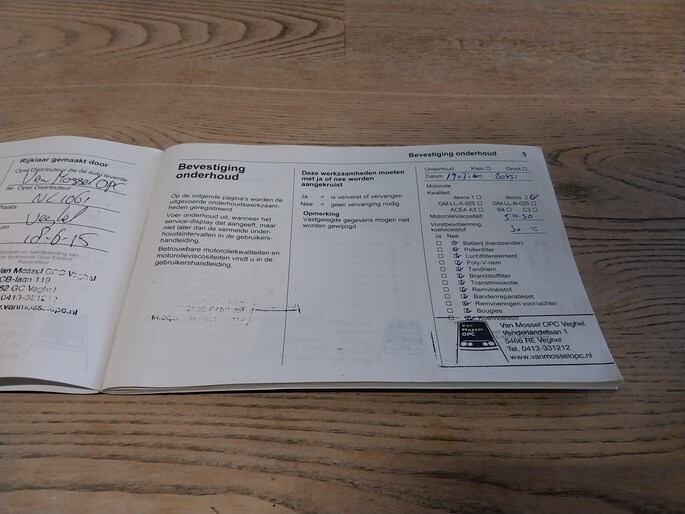 Rijklaar gemaakt door
Opel Distributeur die de auto leverde
Van Mossel OPC
Nr. Opel Distributeur
NL1061
Plaats
Veghel
18-6-15
Van Mossel OPC Veghel
CB-laan 119
GC Veghel
0413-331212
.vanmosselopc.nl
Bevestiging
onderhoud
Op de volgende pagina's worden de
uitgevoerde onderhoudswerkzaam-
heden geregistreerd.
Voer onderhoud uit, wanneer het
service-display dat aangeeft, maar
niet later dan de vermelde onder-
houdsintervallen in de gebruikers-
handleiding.
Betrouwbare motoroliekwaliteiten en
motorolieviscositeiten vindt u in de
gebruikershandleiding.
Deze werkzaamheden moeten
met ja of nee worden
aangekruist
Ja = is ververst of vervangen
Nee = geen vervanging nodig
Opmerking
Vastgelegde gegevens mogen niet
worden gewijzigd.
Bevestiging onderhoud 5
Onderhoud Klein Groot
Datum km 20451
Motorolie
Kwaliteit:
dexos 1 dexos 2
GM-LL-A-025 GM-LL-B-025
ACEA A3 B4 C3
Motorolieviscositeit: 5W-30
Vorstbescherming,
koelvloeistof 30 °C
Ja Nee
Batterij (handzender)
Pollenfilter
Luchtfilterelement
Poly-V-riem
Tandriem
Brandstoffilter
Transmissieolie
Remvloeistof
Bandenreparatieset
Remvoeringen voor/achter
Bougies
Koelvloeistof
Van
Mossel
OPC
Van Mossel OPC Veghel
Vanderlandelaan 1
5466 RE Veghel
Tel. 0413-331212
www.vanmosselopc.nl